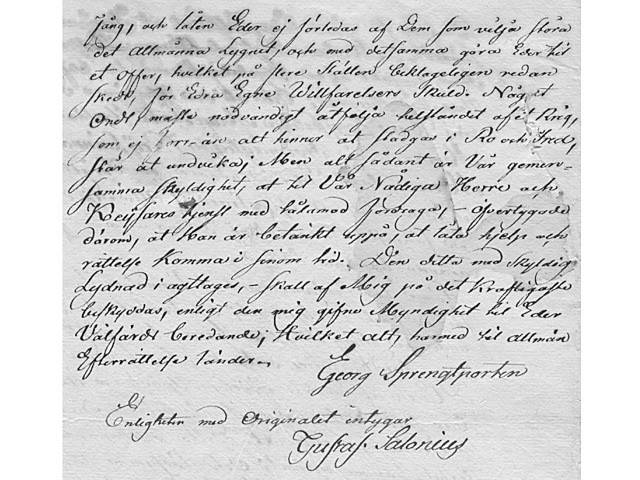 fång, och låten Eder ej förledas af Dem som vilja störa
det Allmänna Lugnet, och med detsamma göra Eder til
et offer, hvilket på flere Ställen beklageligen redan
skedt, för Edra Egne Willfarelsers Skuld. Något
Ondt, måste nödvändigt åtfölja helst ändet af et Krig,
som ej förr än alt hinner at stadgas i Ro och Fred,
står at undvika; Men alt sådant är Vår gemen-
samma skyldighet, at til Vår Nådiga Herre och
Keysares tjenst med tålamod fördraga, - öfvertygade
därom, at Han är betänkt uppå, at låta hjelp och
rättelse komma i sinom tid. Den detta med skyldig
Lydnad i agttages, - skall af Mig på det Kraftigaste
beskyddas, enligt den mig gifne Myndighet til Eder
Välfärds beredande; Hvilket alt, härmed til allmän
Efterrättelse länder.
Georg Sprengtporten
Enligheten med Originalet intygar
Gustaf Salonius